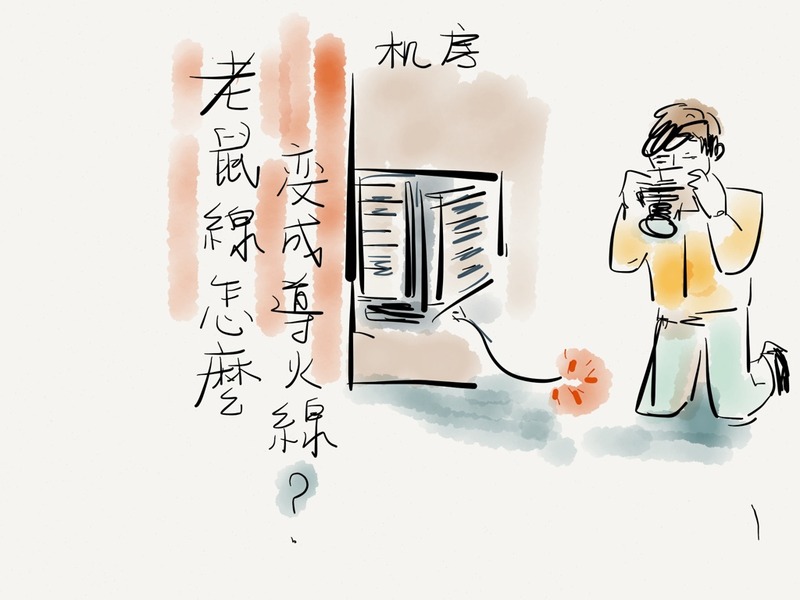 机房
老鼠線怎麼
变成導火線?